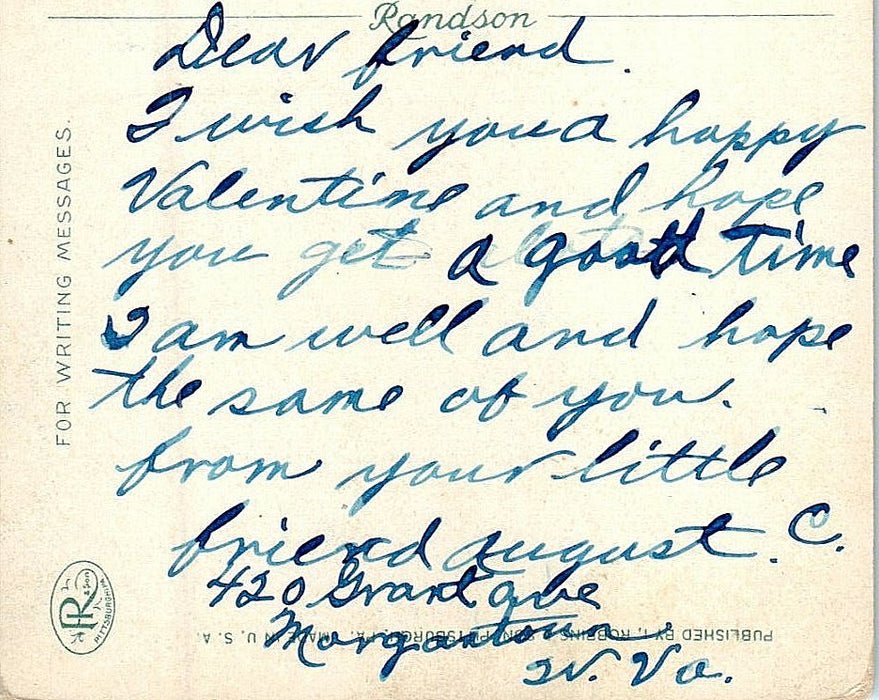 Randson
Dear friend.
I wish you a happy
Valentine and hope
you get a good time
I am well and hope
the same of you.
from your little
friend august. C.
420 Grant ave
Morgantown
W. Va.
FOR WRITING MESSAGES.
PUBLISHED BY I. ROBBINS & SON, PITTSBURGH, PA. MADE IN U. S. A.
I R & Son
PITTSBURGH PA